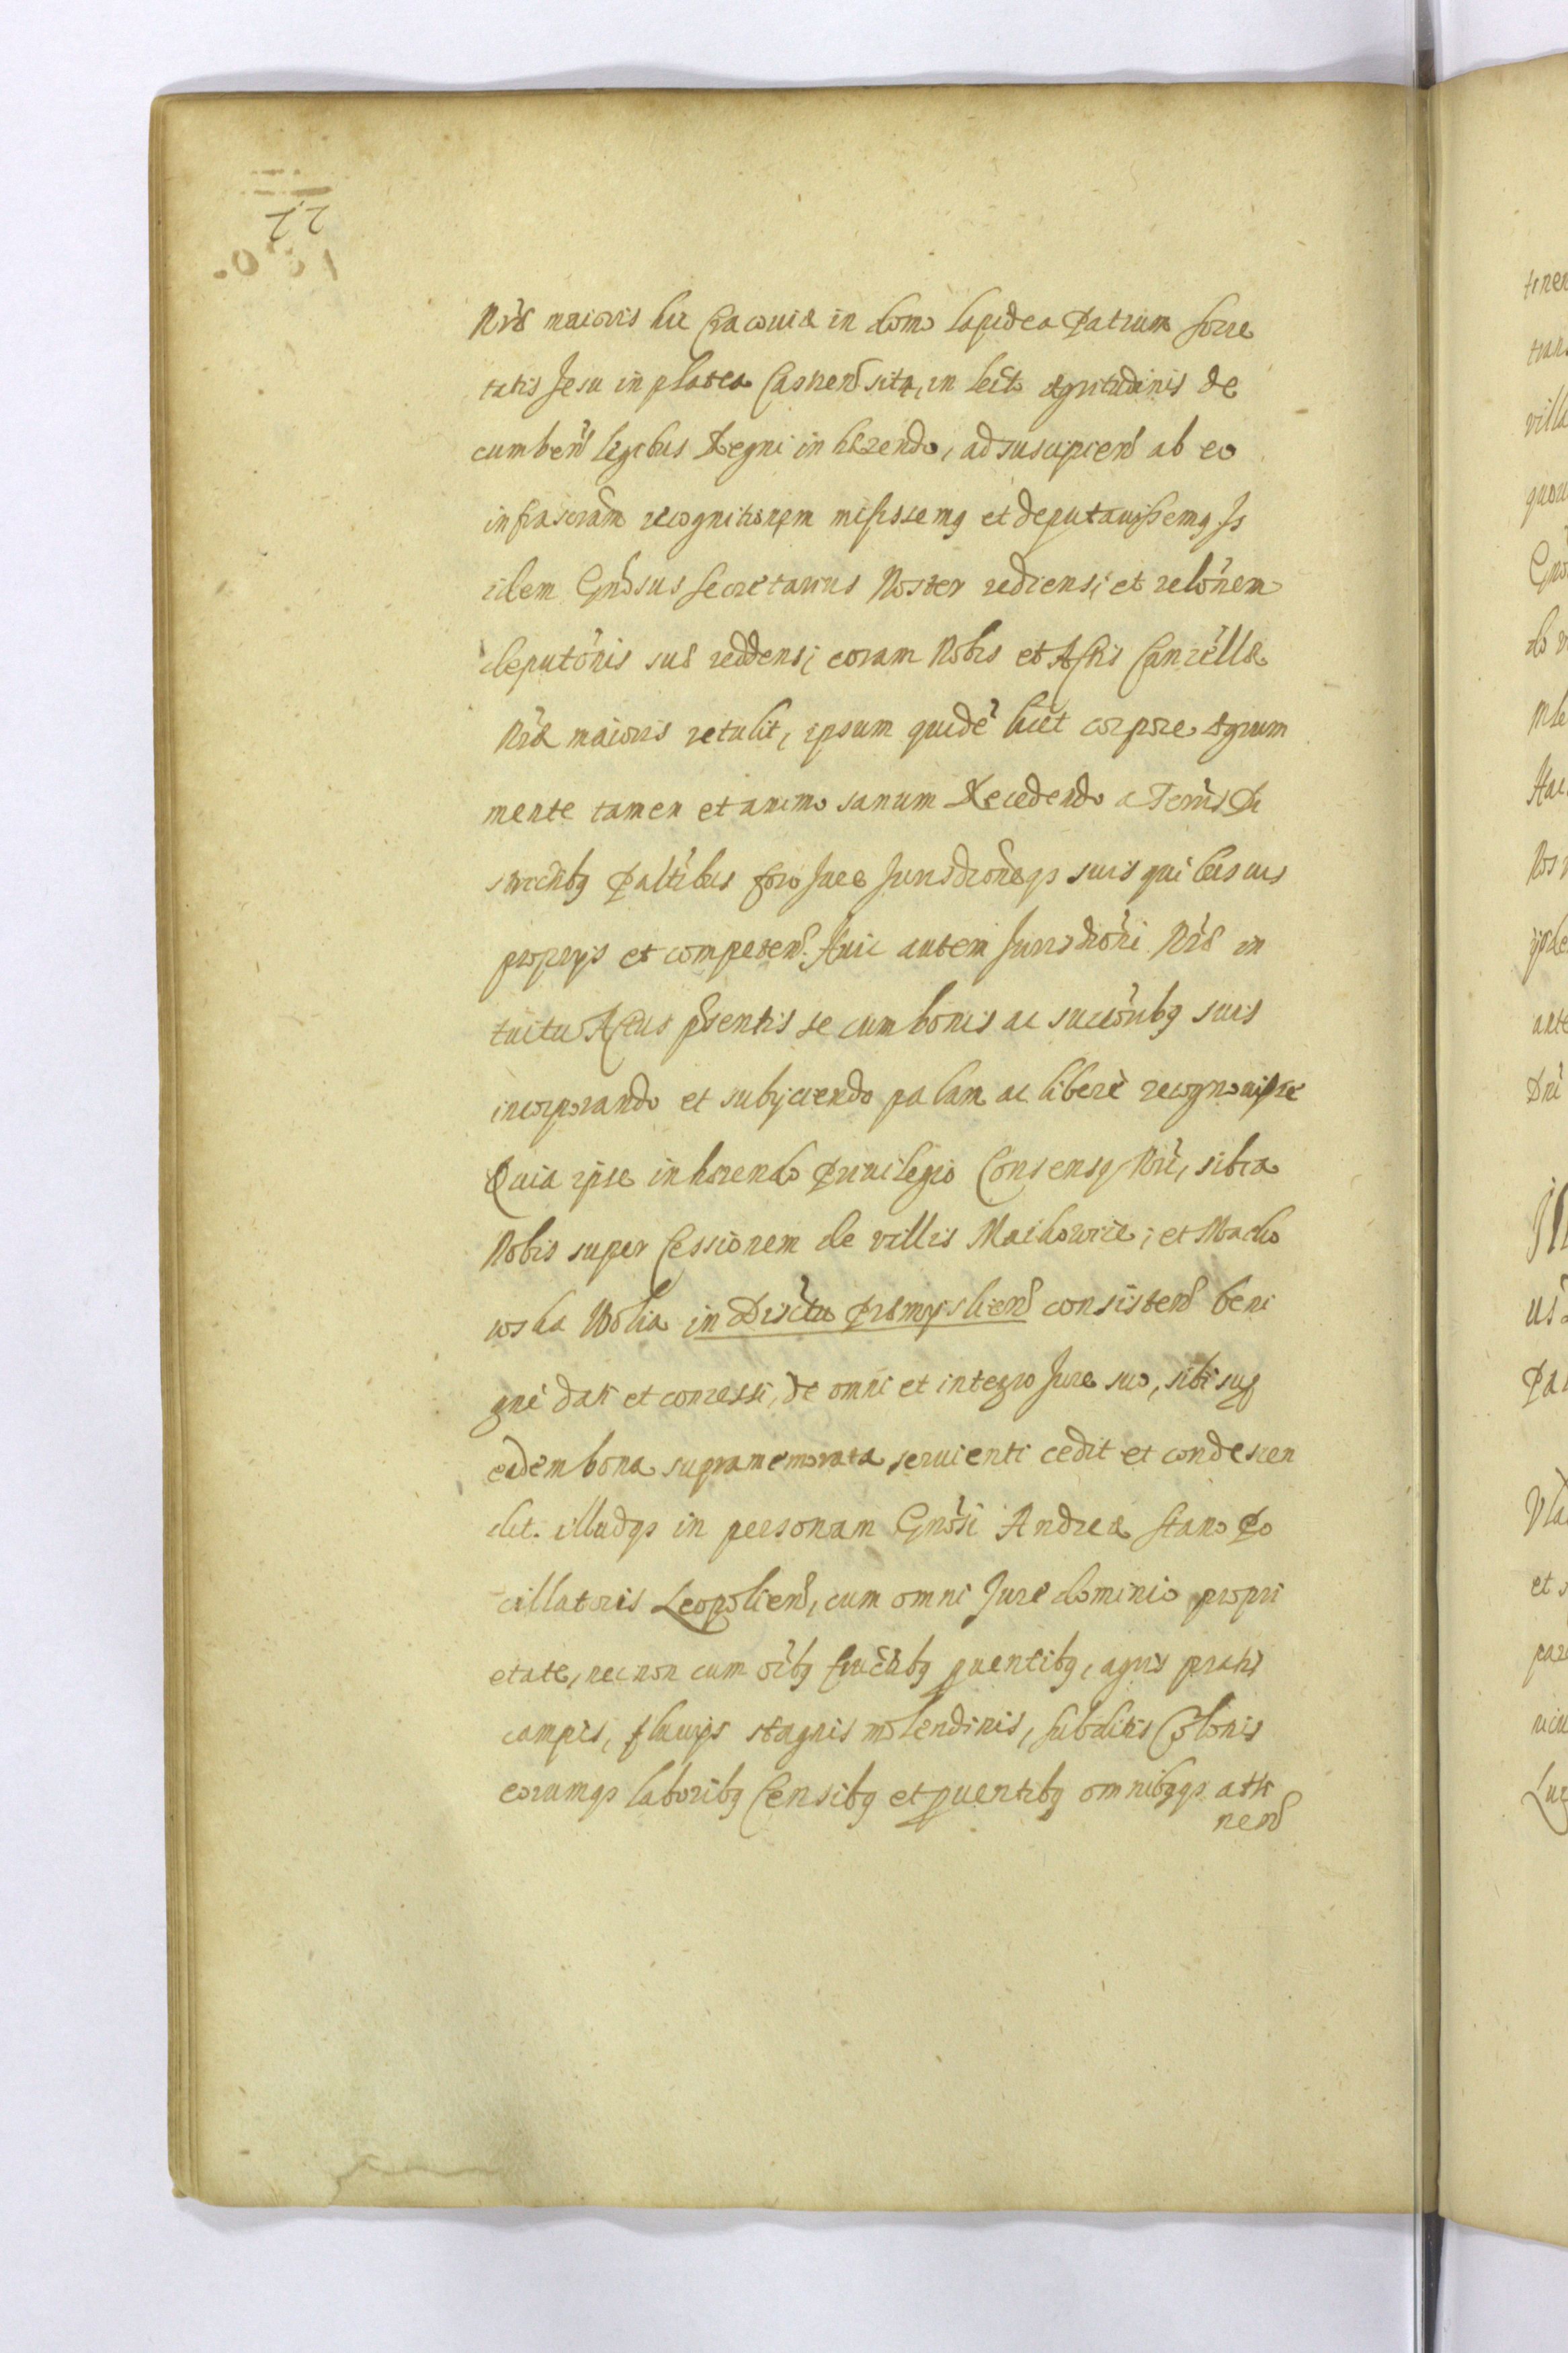 Nræ maioris hic Cracoviæ in domo lapidea Patrum Socie
tatis Jesu in platea Castren sita, in lecto ægritudinis de
cumben legibus Regni inhærendo, ad suscipien ab eo
infrascram recognitionem misissemq et deputavissemq Js
idem Gnosus Secretarius Noster rediens; et relonem
deputonis suæ reddens; coram Nobis et Actis Cancellæ
Nræ maioris retulit, ipsum quide licet corpore ægrum
mente tamen et animo sanum Recedendo a Terris Di
strictibq Palatibus foro Jure Jurisdioneqs suis quibusvis
proprijs et competen. Huic autem Jurisdioni Nræ in
tuitu Actus psentis se cum bonis ac succoribq suis
incorporando et subijciendo palam ac libere recognovisse
Quia ipse inhærendo Privilegio Consensq Nri, sibi a
Nobis super Cessionem de villis Machowice; et Macho
wska Wolia in Disctu Præmyslien consisten beni
gne dati et concessi, de omni et integro Jure suo, sibi suq
eadem bona supramemorata servienti cedit et condescen
dit. illudqs in personam Gnosi Andreæ Stano Po
cillatoris Leopolien, cum omni Jure dominio propri
etate, nec non cum oibq fructibq pventibq, agris pratis
campis, fluvijs stagnis molendinis, subditis Colonis
eorumqs laboribq Censibq et pventibq omnibqqs atti
nen